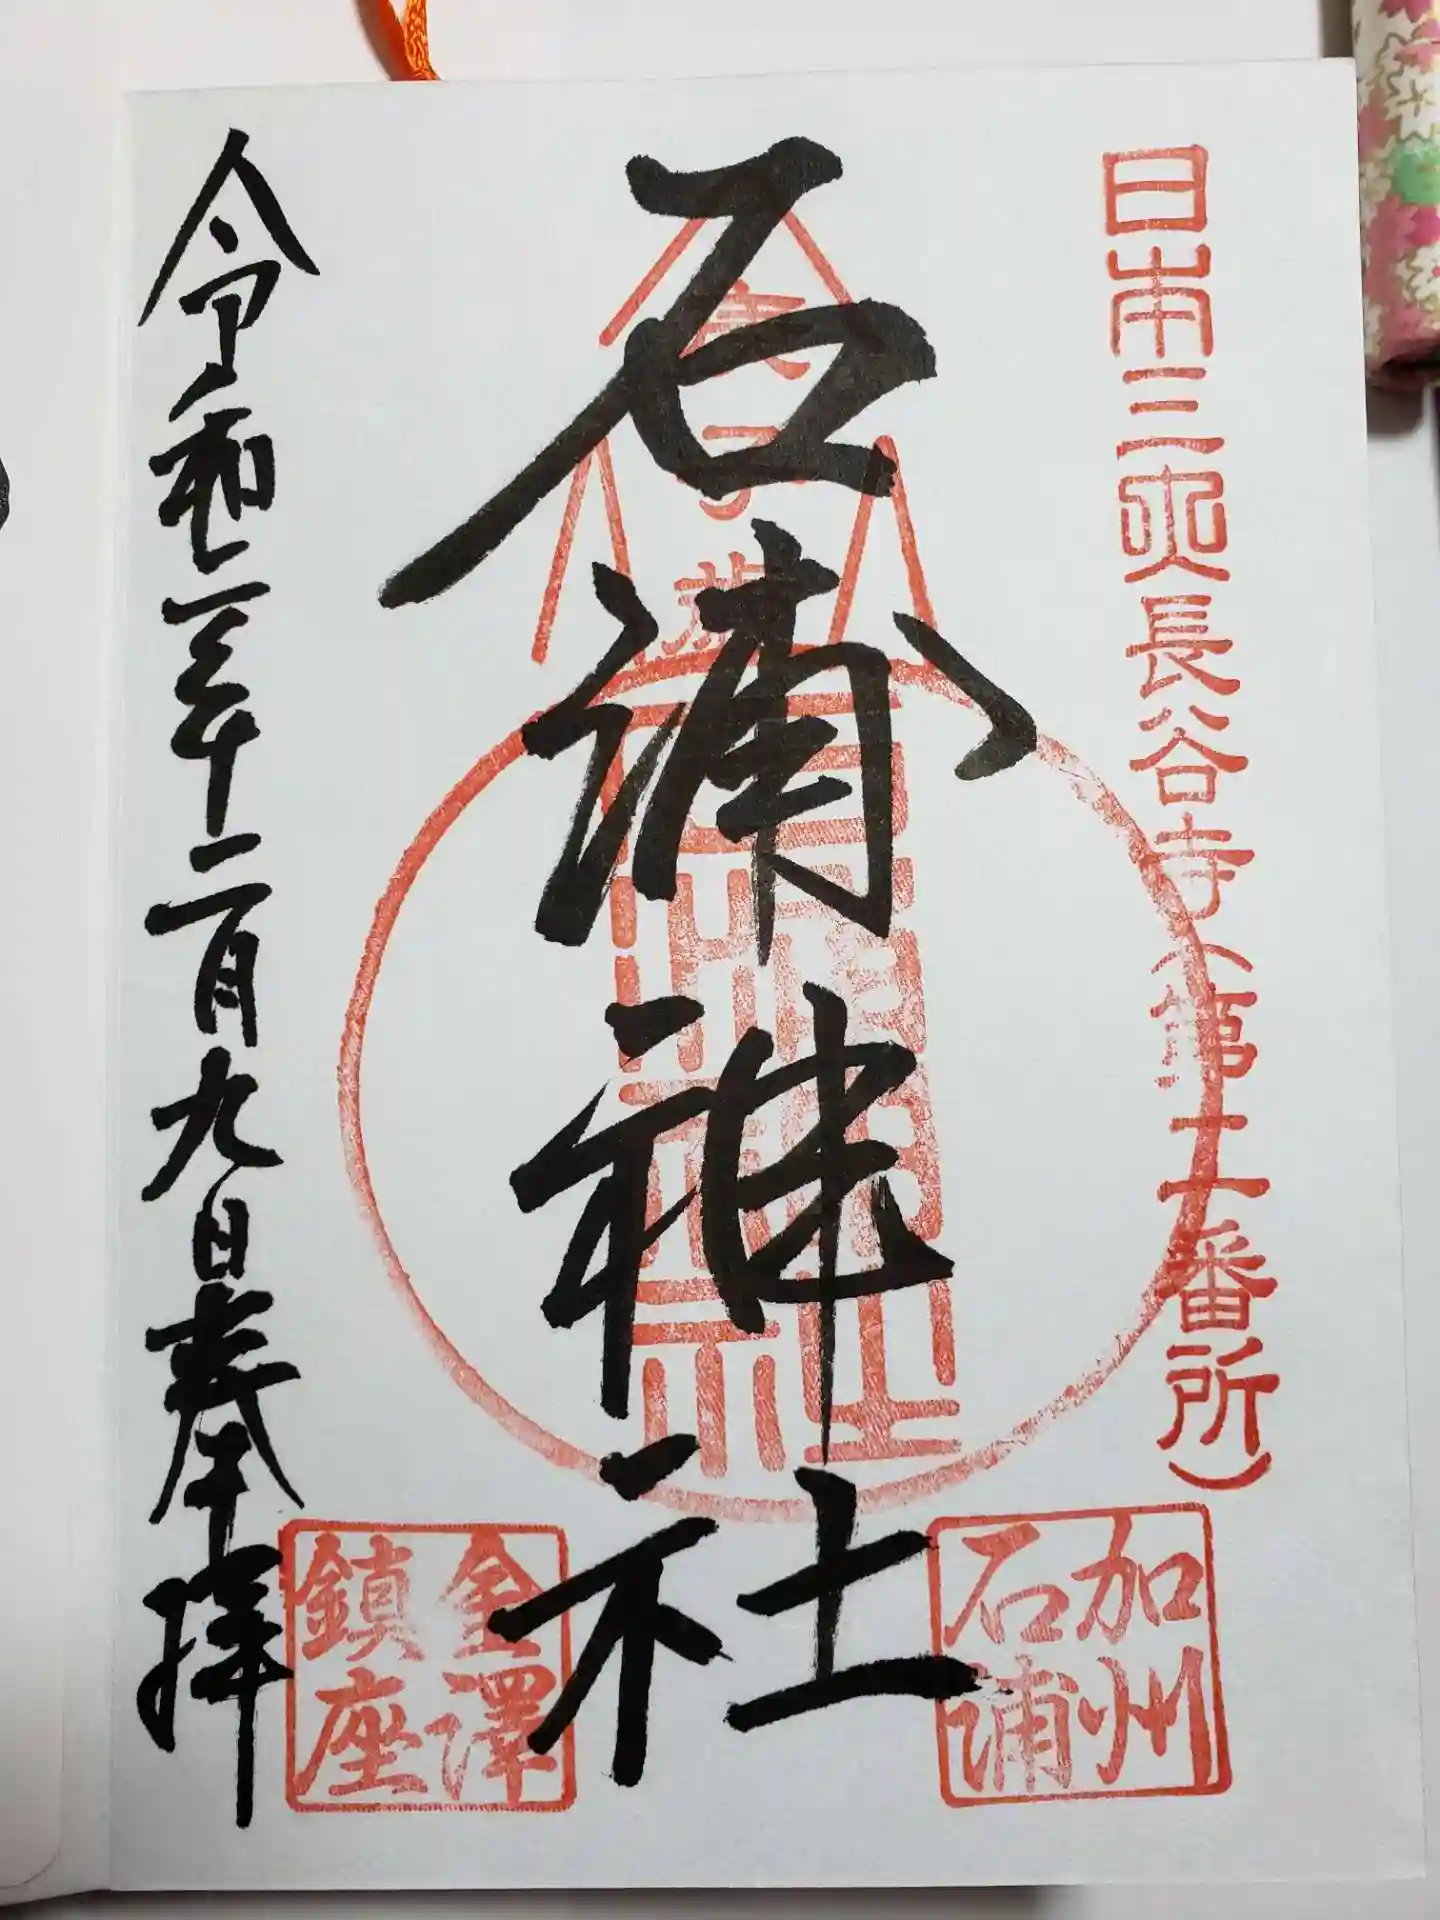 日本三大長谷寺(第十一番所)
加州
石浦
石浦神社
令和三年十二月九日奉拝
金澤
鎮座